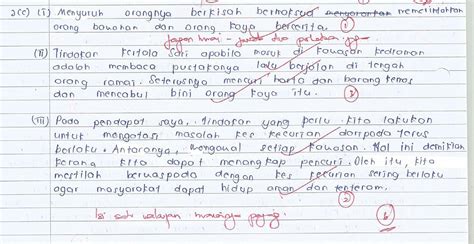 2(c) (i) Menyuruh orangnya berkisah bermaksud menyarankan memerintahkan
orang bawahan dan orang kaya bercerita. 1
(ii) Tindakan Kertala Sati apabila masuk di kawasan kediaman
adalah membaca pustakanya lalu berjalan di tengah
orang ramai. Seterusnya mencuri harta dan barang kemas
dan mencabul bini orang kaya itu. 3
(iii) Pada pendapat saya, tindakan yang perlu kita lakukan
untuk mengatasi masalah kes kecurian daripada terus
berlaku. Antaranya, mengawal setiap kawasan. Hal ini demikian
kerana kita dapat menangkap pencuri. Oleh itu, kita
mestilah berwaspada dengan kes kecurian sering berlaku
agar masyarakat dapat hidup aman dan tenteram.
2
6